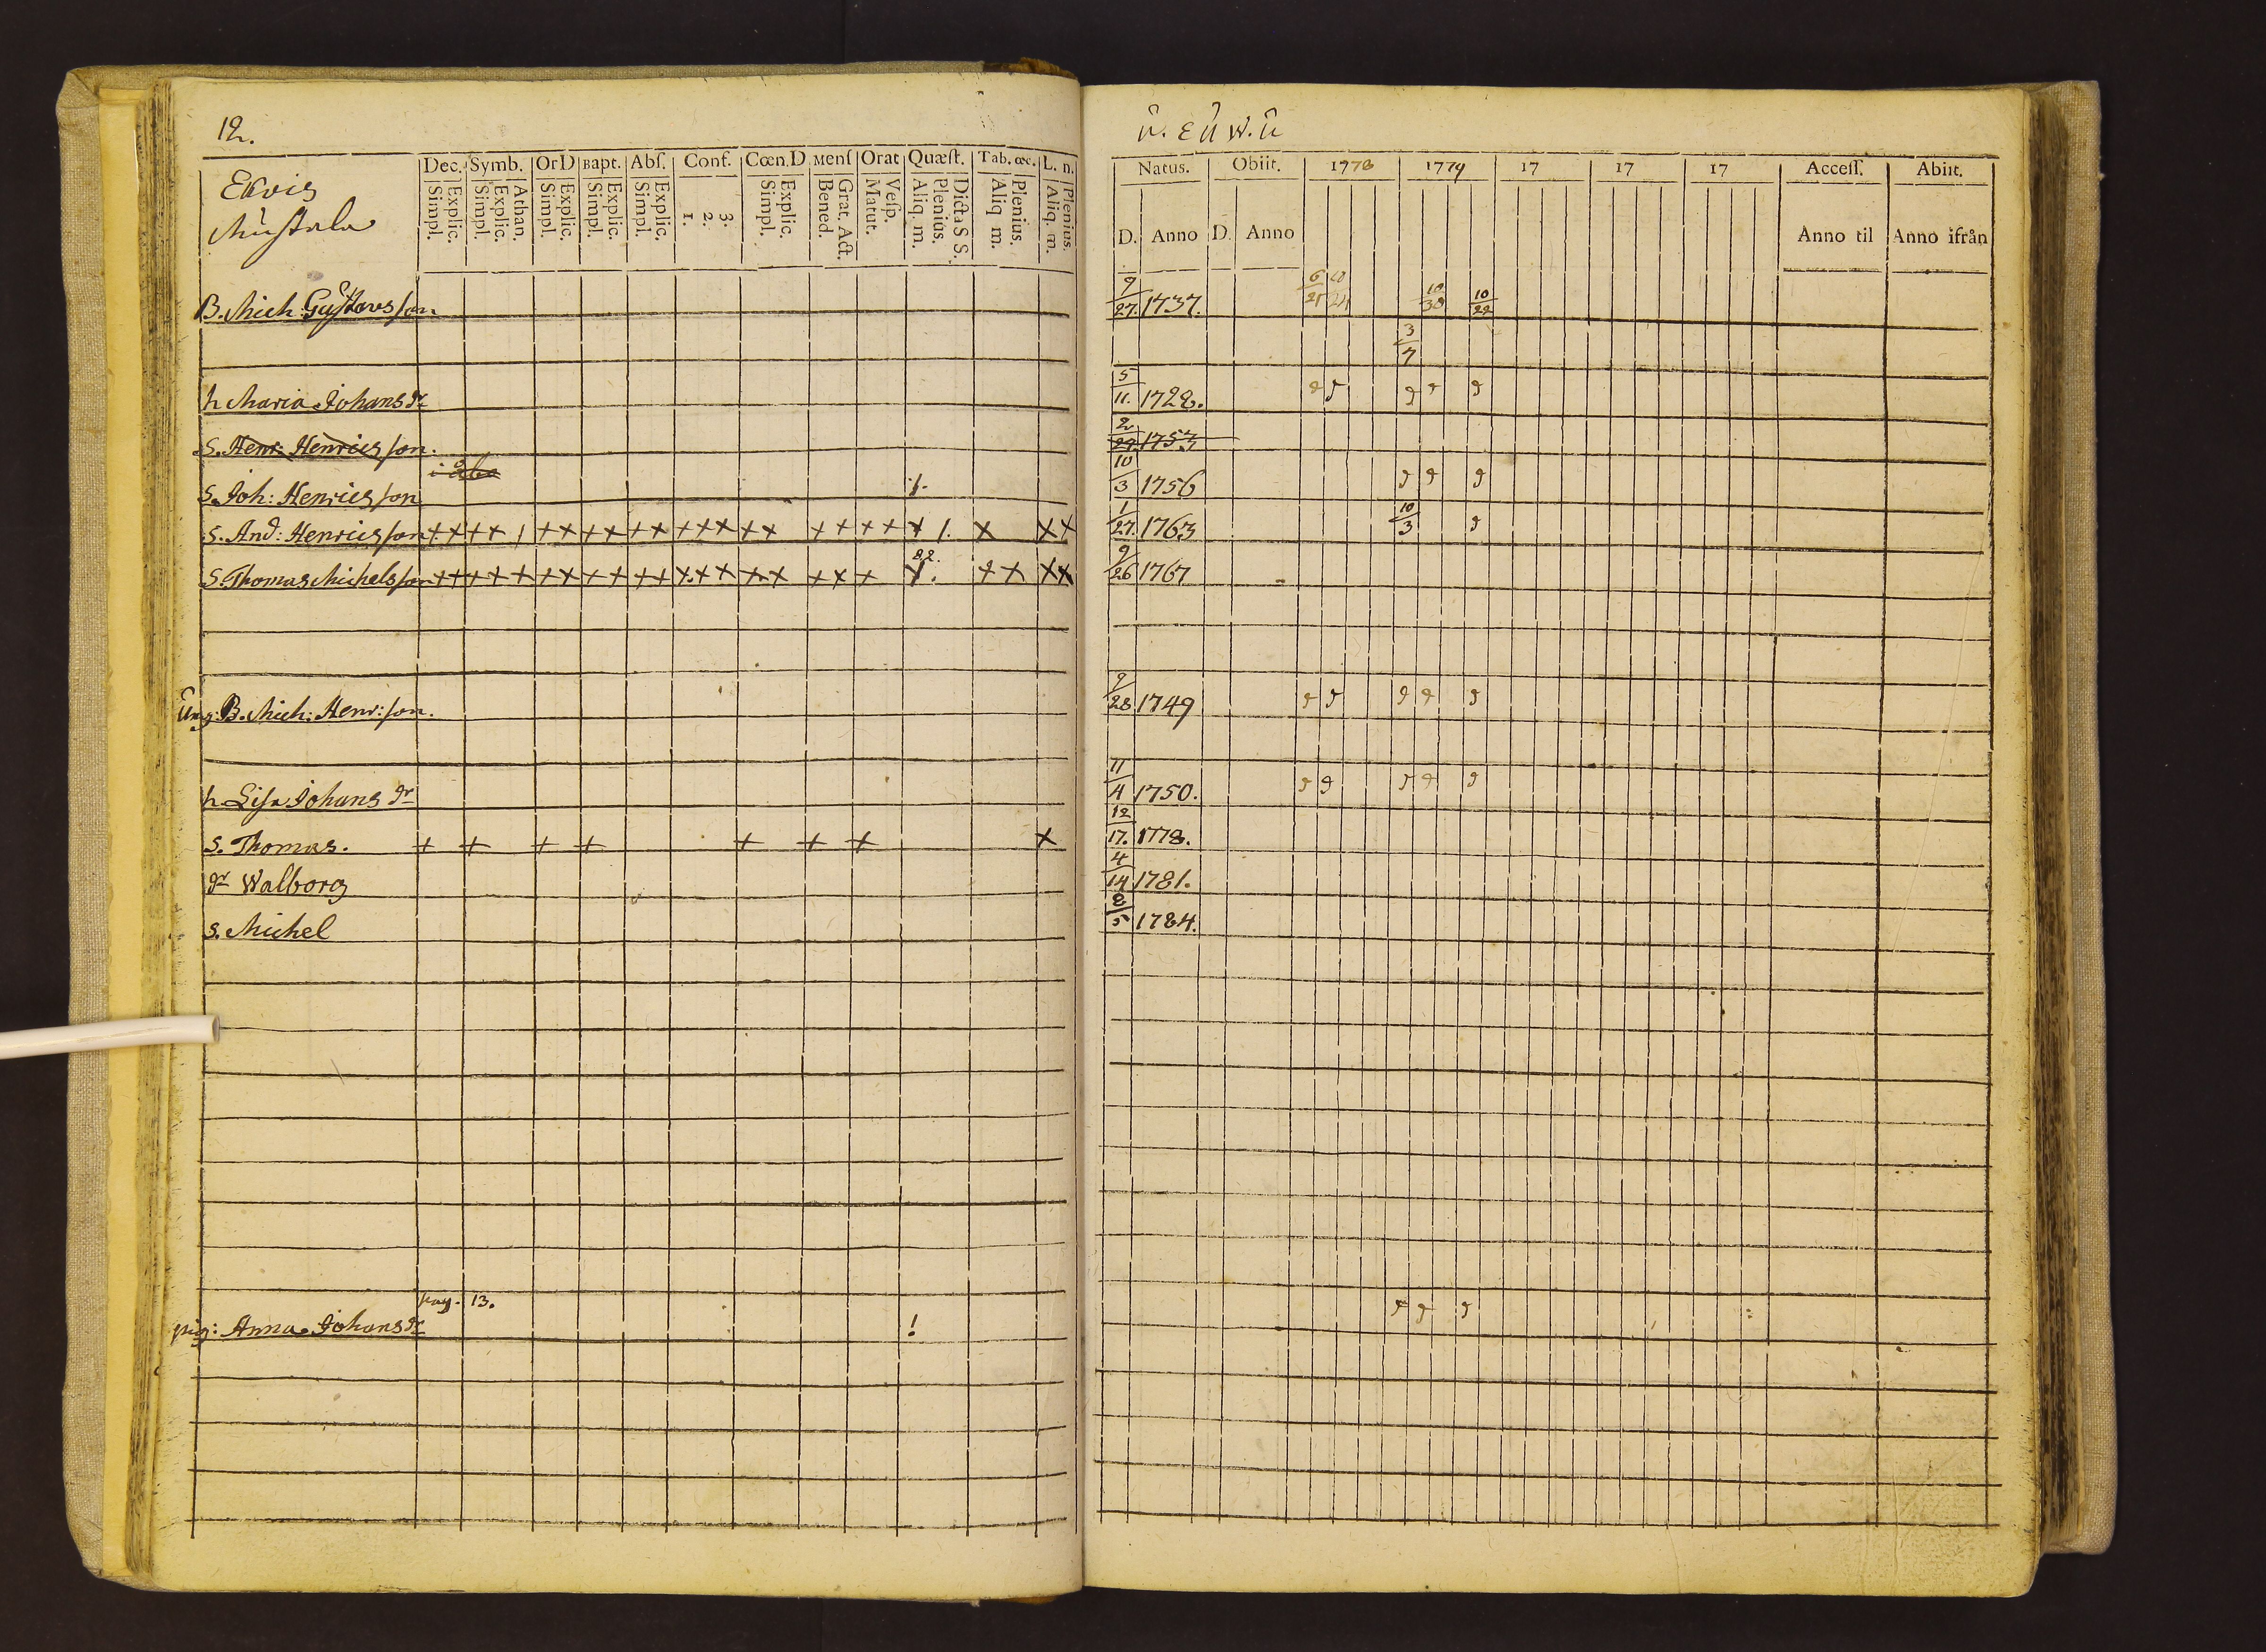 12.
Dec. Symb. OrD Bapt. Abſ. Conf. Cœn.D Menſ Orat Quæſt. Tab. œc. L. n.
Simpl. Explic. Simpl. Explic. Athan. Simpl. Explic. Simpl. Explic. Simpl. Explic. 1. 2. 3. Simpl. Explic. Bened. Grat. Act. Matut. Veſp. Aliq. m. Plenius. Dicta S S. Aliq m. Plenius. Aliq. m. Plenius.
Ekois
Mustala
B. Mich: Gustavs son.
h Maria Johans dr
S. Henr: Henrics son.
S. Joh: Henrics son /.
S. And: Henrics son ++ ++ / ++ ++ ++ +++ ++ ++ ++ + /. + ++
S. Thomas Michels son ++ +++ ++ ++ ++ +++ ++ ++ + ++ ++
Ung: B. Mich: Henr: son.
h. Lisa Johans dr
S. Thomas. + + + + + + + +
dr Walborg
S. Michel
pag. 13.
pig: Anna Johans dr !
Natus. Obiit. 1778 1779 17 17 17 Acceſſ. Abiit.
D. Anno D. Anno Anno til Anno ifrån
9/27. 1737. 6/21 10/24 10/30 10/22
3/7
5/11. 1728.
2/27. 1753
10/3 1756
1/27. 1763 10/3
9/26 1767
9/28 1749
11/4 1750.
12/17. 1778.
4/14 1781.
8/5 1784.